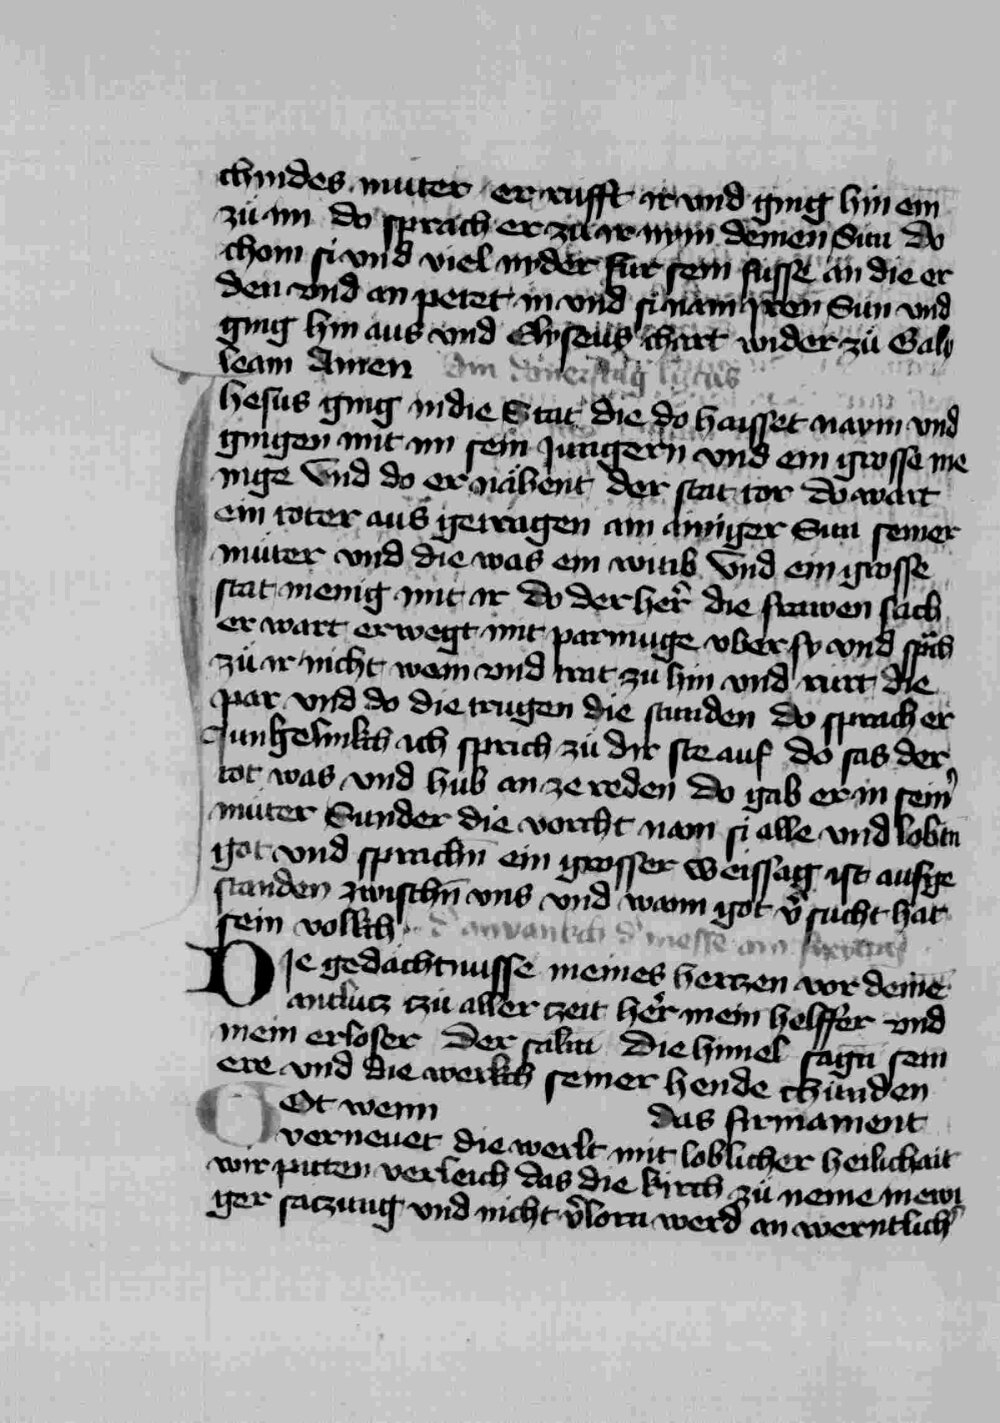 chindes muter er rufft ir vnd ging hin ein
zu im do sprach er zu ir nym deinen Sun do
chom si vnd viel nyder fur sein fusse an die er
den vnd an petet in vnd si nam yren Sun vnd
ging hin aus vnd Elyseus chart wider zu Galy
leam Amen Am donerstag lucas
Jhesus ging in die Stat die do haisset naym vnd
gingen mit im sein Jungern vnd ein grosse me
nige Vnd do er nähent der stat tor do wart
ein toter aus getragen ain ainiger Sun seiner
muter vnd die was ein witib Vnd ein grosse
stat menig mit ir do der her die frawen sach
er wart erwegt mit parmu̇ge vber sy vnd spch
zu ir nicht wain vnd trat zu hin vnd rurt die
par vnd do die trugen die stunden do sprach er
Jungelinkch ich sprich zu dir ste auf do sas der
tot was vnd hub an ze reden do gab er in sein
muter Sunder die vorcht nam si alle vnd lobtn
got vnd sprachn̄ ein grosser weissag ist aufge
standen zwischn̄ vns vnd wann got v̓sucht hat
sein volkch d anvankch d messe am freytag
DIe gedächtnusse meines hertzen vor deine
antlutz tzu aller tzeit her mein helffer vnd
mein erloser Der salm Die himel sagn̄ sein
ere vnd die werkch seiner hende chunden
GOt wenn das firmament
verneuet die werlt mit loblicher heilichait
wir pitten verleich das die kirch zu neme in ewi
ger satzung vnd nicht v̓lorn werd an werntlich